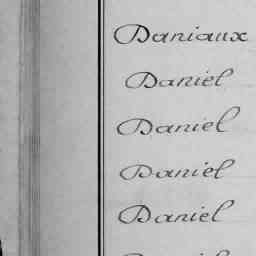 Daniaux
Daniel
Daniel
Daniel
Daniel